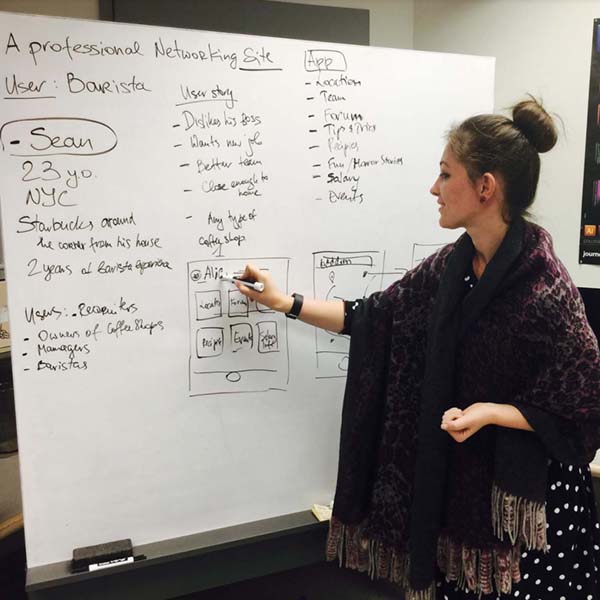 A professional Networking Site
User: Barista
- Sean
23 y.o.
NYC
Starbucks around
the corner from his house
2 years of Barista Experience
Users:
- Owners of Coffee Shops
- Managers
- Baristas
User story
- Dislikes his boss
- Wants new job
- Better team
- Close enough to
home
- Any type of
coffee shop
App
- Location
- Team
- Forum
- Tips & Tricks
- Recipies
- Fun / Horror Stories
- Salary
- Events
Recipes
Events
Ai